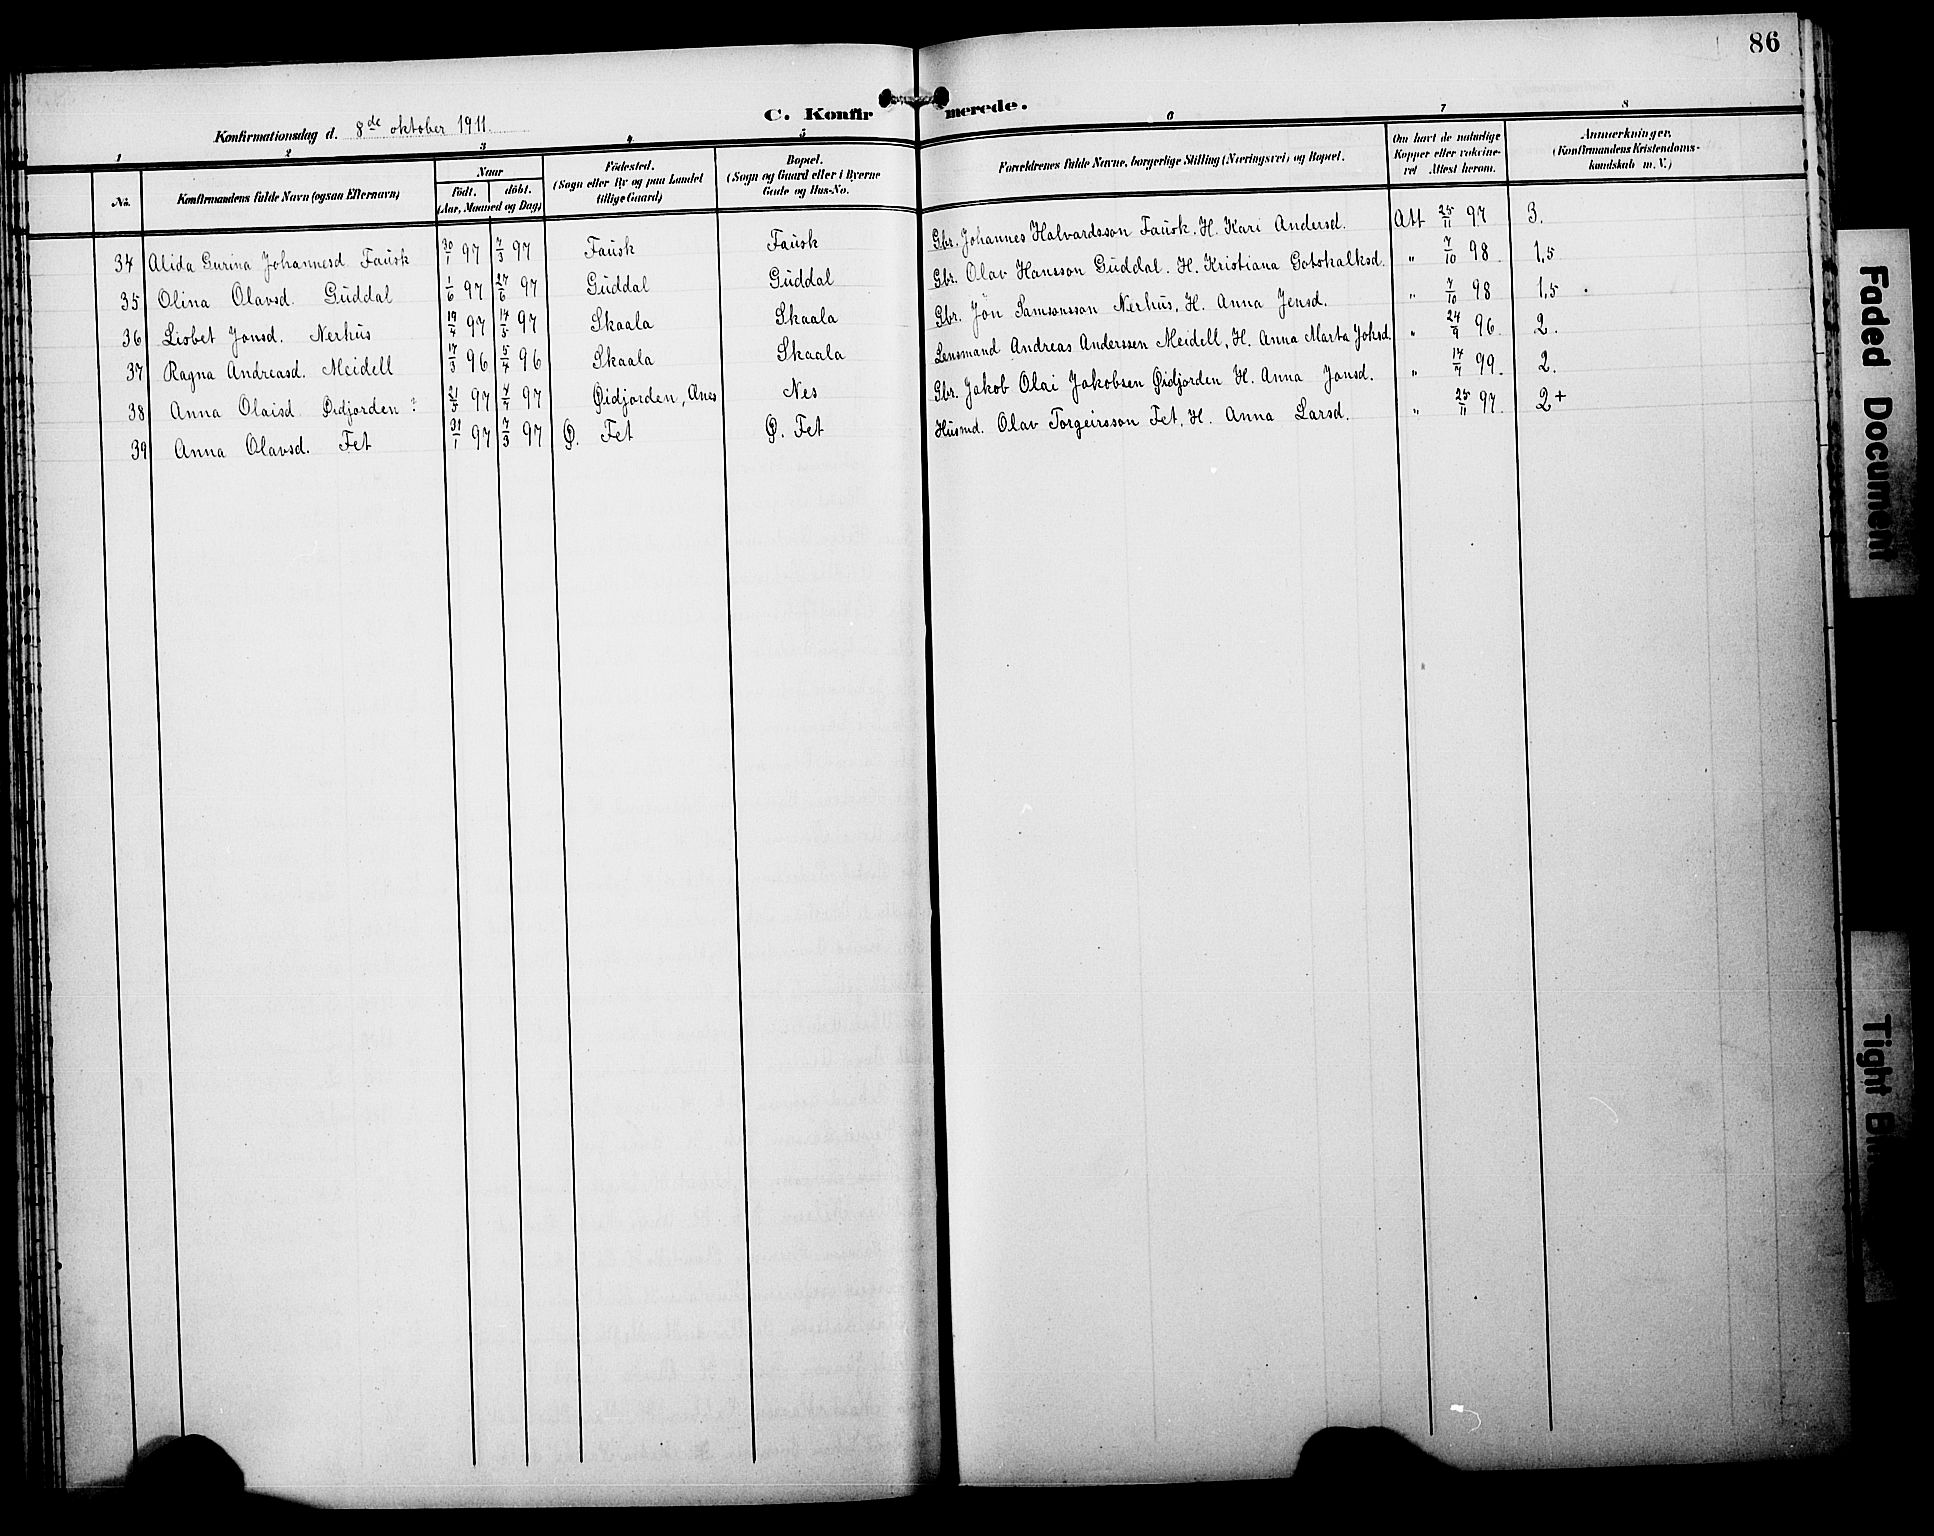 86
C. Konfirmerede.
Konfirmationsdag d. 8de oktober 1911
1 2 3 4 5 6 7 8
No. Konfirmandens fulde Navn (ogsaa Efternavn) Naar født. døbt. (Aar, Maaned og Dag) Fødested. (Sogn eller By og paa Landet tillige Gaard) Bopæl. (Sogn og Gaard eller i Byerne Gade og Hus-No. Forældrenes fulde Navne, borgerlige Stilling (Næringsvei) og Bopæl. Om havt de naturlige Kopper eller vakcineret Attest herom. Anmerkninger. (Konfirmandens Kristendomskundskab m. V.)
34 Alida Gurina Johannesd. Fausk 30/1 97 7/3 97 Fausk Fausk Gbr. Johannes Halvardsson Fausk. H. Kari Andersd. Att 25/11 97 3.
35 Olina Olavsd. Guddal 1/6 97 27/6 97 Guddal Guddal Gbr. Olav Hansson Guddal. H. Kristiana Gotskalksd. " 7/10 98 1,5
36 Lisbet Jonsd. Nerhus 19/4 97 17/5 97 Skaala Skaala Gbr. Jon Samsonsson Nerhus, H. Anna Jensd. " 7/10 98 1,5
37 Ragna Andreasd. Meidell 17/3 96 5/4 96 Skaala Skaala Lensmand Andreas Anderssen Meidell, H. Anna Marta Johsd. " 24/9 96 2.
38 Anna Olaisd Øidjorden ? 21/3 97 4/4 97 Øidjorden, Ænes Nes Gbr. Jakob Olai Jakobsen Øidjorden H. Anna Jonsd. " 14/4 99 2.
39 Anna Olavsd. Fet 31/1 97 7/3 97 Ø. Fet Ø. Fet Husmd. Olav Torgeirsson Fet, H. Anna Larsd. " 25/11 97 2+
Faded Document
Tight